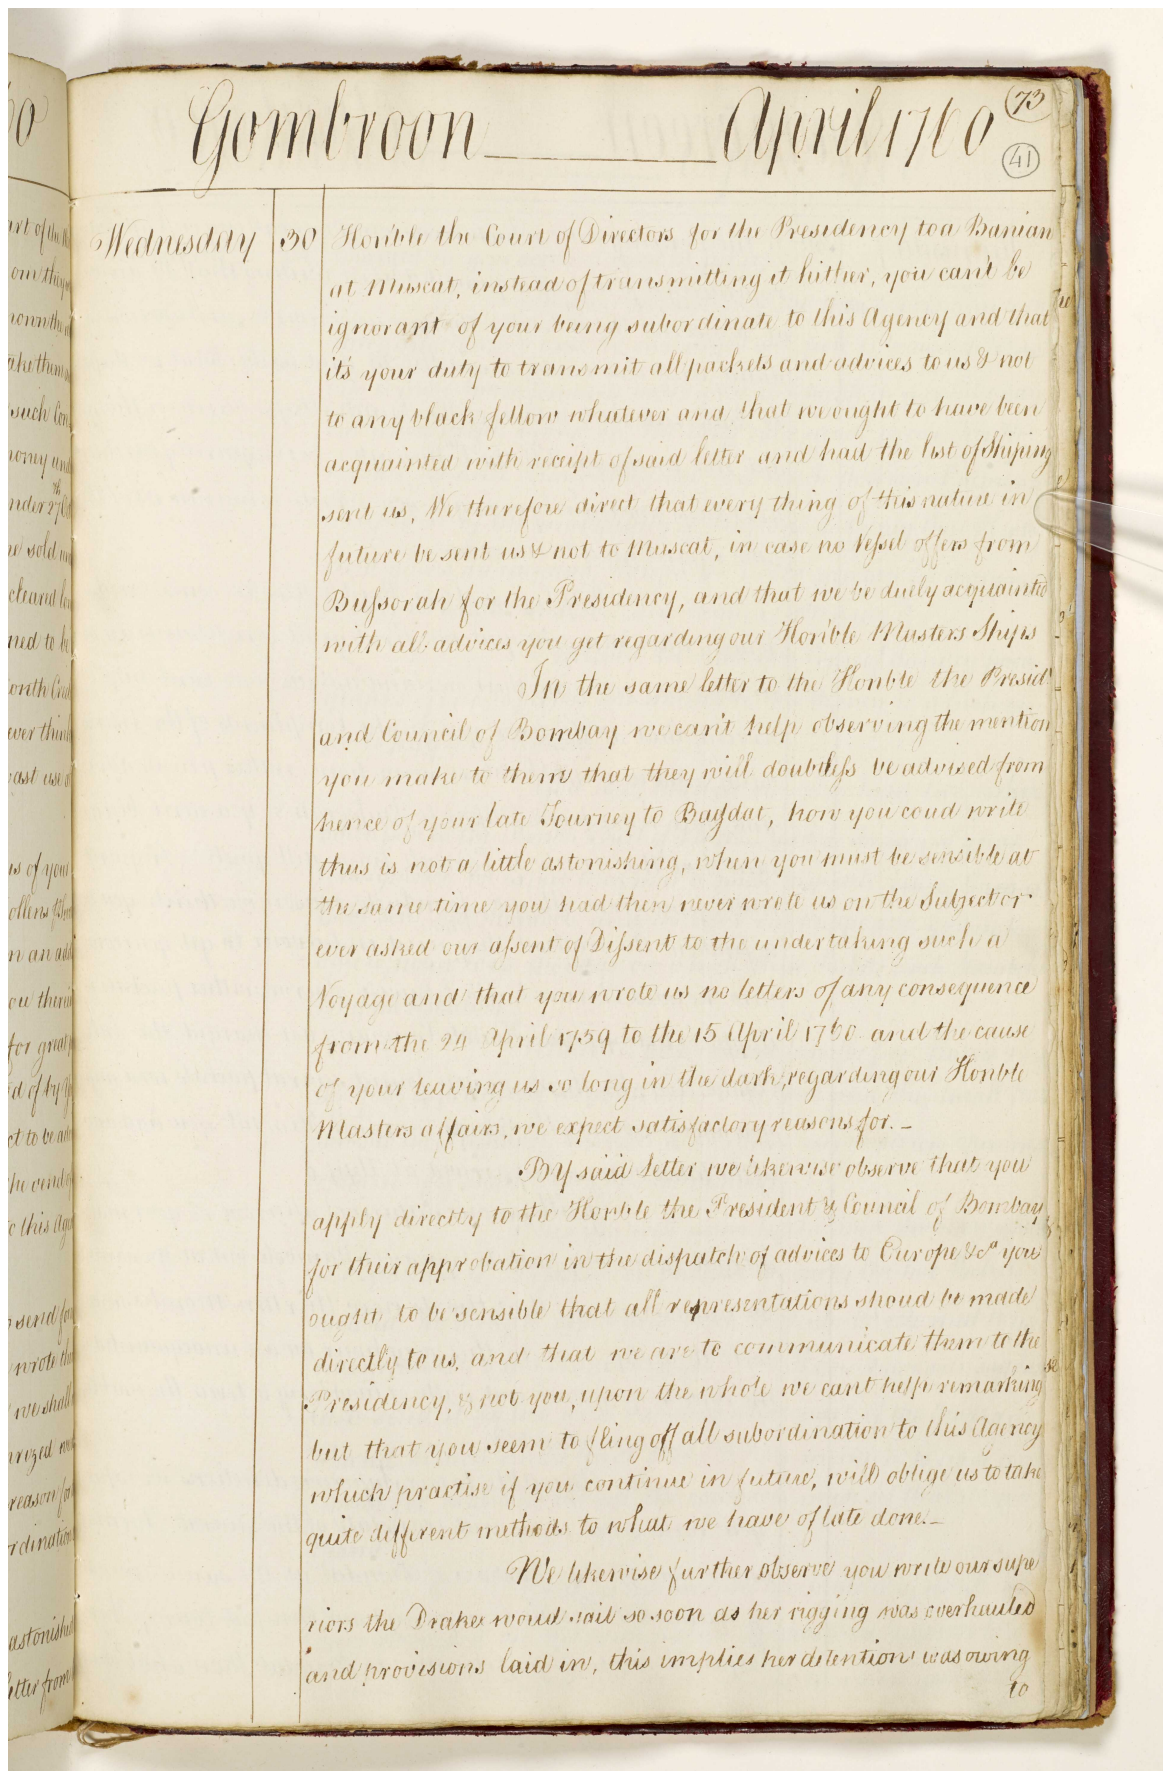 Gombroon April 1760
73
41
Wednesday 30 Honble the Court of Directors for the Presidency to a Banian
at Muscat, instead of transmitting it hither, you can't be
ignorant of your being subordinate to this Agency and that
it's your duty to transmit all packets and advices to us & not
to any black fellow whatever and that we ought to have been
acquainted with receipt of said letter and had the list of Shiping
sent us, We therefore direct that every thing of this nature in
future be sent us & not to Muscat, in case no Vessel offers from
Bussorah for the Presidency, and that we be duely acquainted
with all advices you get regarding our Honble Masters Ships
In the same letter to the Honble the Presidt
and Council of Bombay we can't help observing the mention
you make to them that they will doubtless be advised from
hence of your late Journey to Bagdat, how you coud write
thus is not a little astonishing, when you must be sensible at
the same time you had then never wrote us on the Subject or
ever asked our assent of Dissent to the undertaking such a
Voyage and that you wrote us no letters of any consequence
from the 24 April 1759 to the 15 April 1760 and the cause
of your leaving us so long in the dark, regarding our Honble
Masters affairs, we expect satisfactory reasons for. _
By said Letter we likewise observe that you
apply directly to the Honble the President & Council of Bombay
for their approbation in the dispatch of advices to Europe &ca you
ought to be sensible that all representations shoud be made
directly to us, and that we are to communicate them to the
Presidency, & not you, upon the whole we cant help remarking
but that you seem to fling off all subordination to this Agency
which practise if you continue in future, will oblige us to take
quite different methods to what we have of late done. _
We likewise further observe you write our supe
riors the Drake woud sail so soon as her rigging was overhauled
and provisions laid in, this implies her detention was owing
to